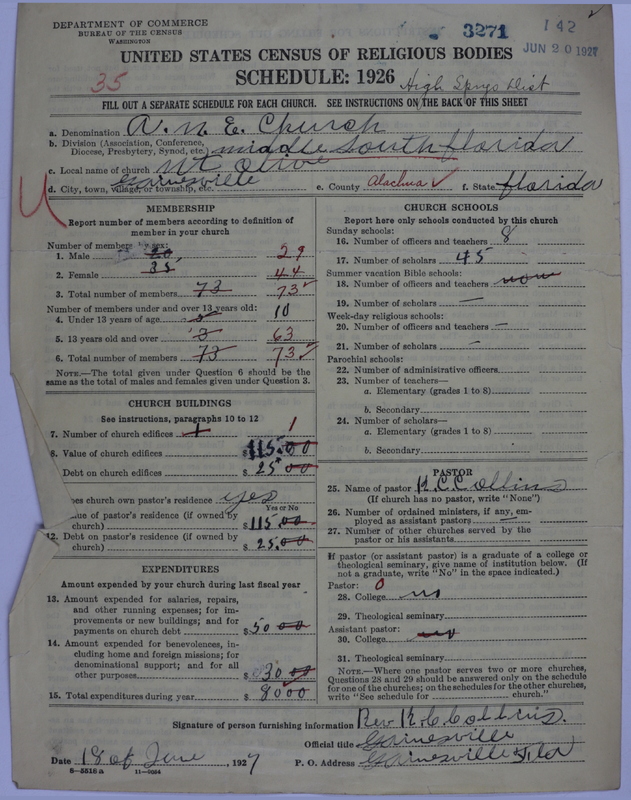 DEPARTMENT OF COMMERCE
BUREAU OF THE CENSUS
WASHINGTON
3271
142
JUN 20 1927
UNITED STATES CENSUS OF RELIGIOUS BODIES
35
SCHEDULE: 1926
High Spngs Dist
FILL OUT A SEPARATE SCHEDULE FOR EACH CHURCH. SEE INSTRUCTIONS ON THE BACK OF THIS SHEET
a. Denomination A. M. E. Church
b. Division (Association, Conference, Diocese, Presbytery, Synod, etc.) middle South florida
c. Local name of church Mt Olive
d. City, town, village, or township, etc. Gainesville e. County Alachua f. State florida
MEMBERSHIP
Report number of members according to definition of member in your church
Number of members by sex:
1. Male 29
2. Female 35 44
3. Total number of members 73 73
Number of members under and over 13 years old:
4. Under 13 years of age 10
5. 13 years old and over 3 63
6. Total number of members 73 73
NOTE.—The total given under Question 6 should be the same as the total of males and females given under Question 3.
CHURCH BUILDINGS
See instructions, paragraphs 10 to 12
7. Number of church edifices 1 1
8. Value of church edifices $115.00
Debt on church edifices $25 00
es church own pastor's residence yes
Yes or No
ue of pastor's residence (if owned by church) $115.00
12. Debt on pastor's residence (if owned by church) $25.00
EXPENDITURES
Amount expended by your church during last fiscal year
13. Amount expended for salaries, repairs, and other running expenses; for improvements or new buildings; and for payments on church debt $50 00
14. Amount expended for benevolences, including home and foreign missions; for denominational support; and for all other purposes $30 00
15. Total expenditures during year $80 00
CHURCH SCHOOLS
Report here only schools conducted by this church
Sunday schools:
16. Number of officers and teachers 8
17. Number of scholars 45
Summer vacation Bible schools:
18. Number of officers and teachers
19. Number of scholars —
Week-day religious schools:
20. Number of officers and teachers —
21. Number of scholars —
Parochial schools:
22. Number of administrative officers
23. Number of teachers—
a. Elementary (grades 1 to 8)
b. Secondary
24. Number of scholars—
a. Elementary (grades 1 to 8)
b. Secondary
PASTOR
25. Name of pastor R. C. Collins
(If church has no pastor, write "None")
26. Number of ordained ministers, if any, employed as assistant pastors —
27. Number of other churches served by the pastor or his assistants
If pastor (or assistant pastor) is a graduate of a college or theological seminary, give name of institution below. (If not a graduate, write "No" in the space indicated.)
Pastor: 0
28. College no
29. Theological seminary
Assistant pastor:
30. College no
31. Theological seminary
NOTE.—Where one pastor serves two or more churches, Questions 28 and 29 should be answered only on the schedule for one of the churches; on the schedules for the other churches, write "See schedule for church."
Signature of person furnishing information Rev. R. C. Collins.
Official title Gainesville
Date 18 of June, 1927 P. O. Address Gainesville Fla
8—5516 a 11—9064